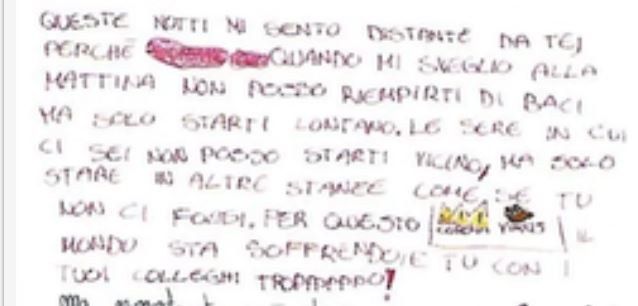 QUESTE NOTTI MI SENTO DISTANTE DA TE,
PERCHÉ QUANDO MI SVEGLIO ALLA
MATTINA NON POSSO RIEMPIRTI DI BACI
MA SOLO STARTI LONTANO. LE SERE IN CUI
CI SEI NON POSSO STARTI VICINO, MA SOLO
STARE IN ALTRE STANZE COME SE TU
NON CI FOSSI. PER QUESTO CORONA VIRUS IL
MONDO STA SOFFRENDO, E TU CON I
TUOI COLLEGHI TROPPO!